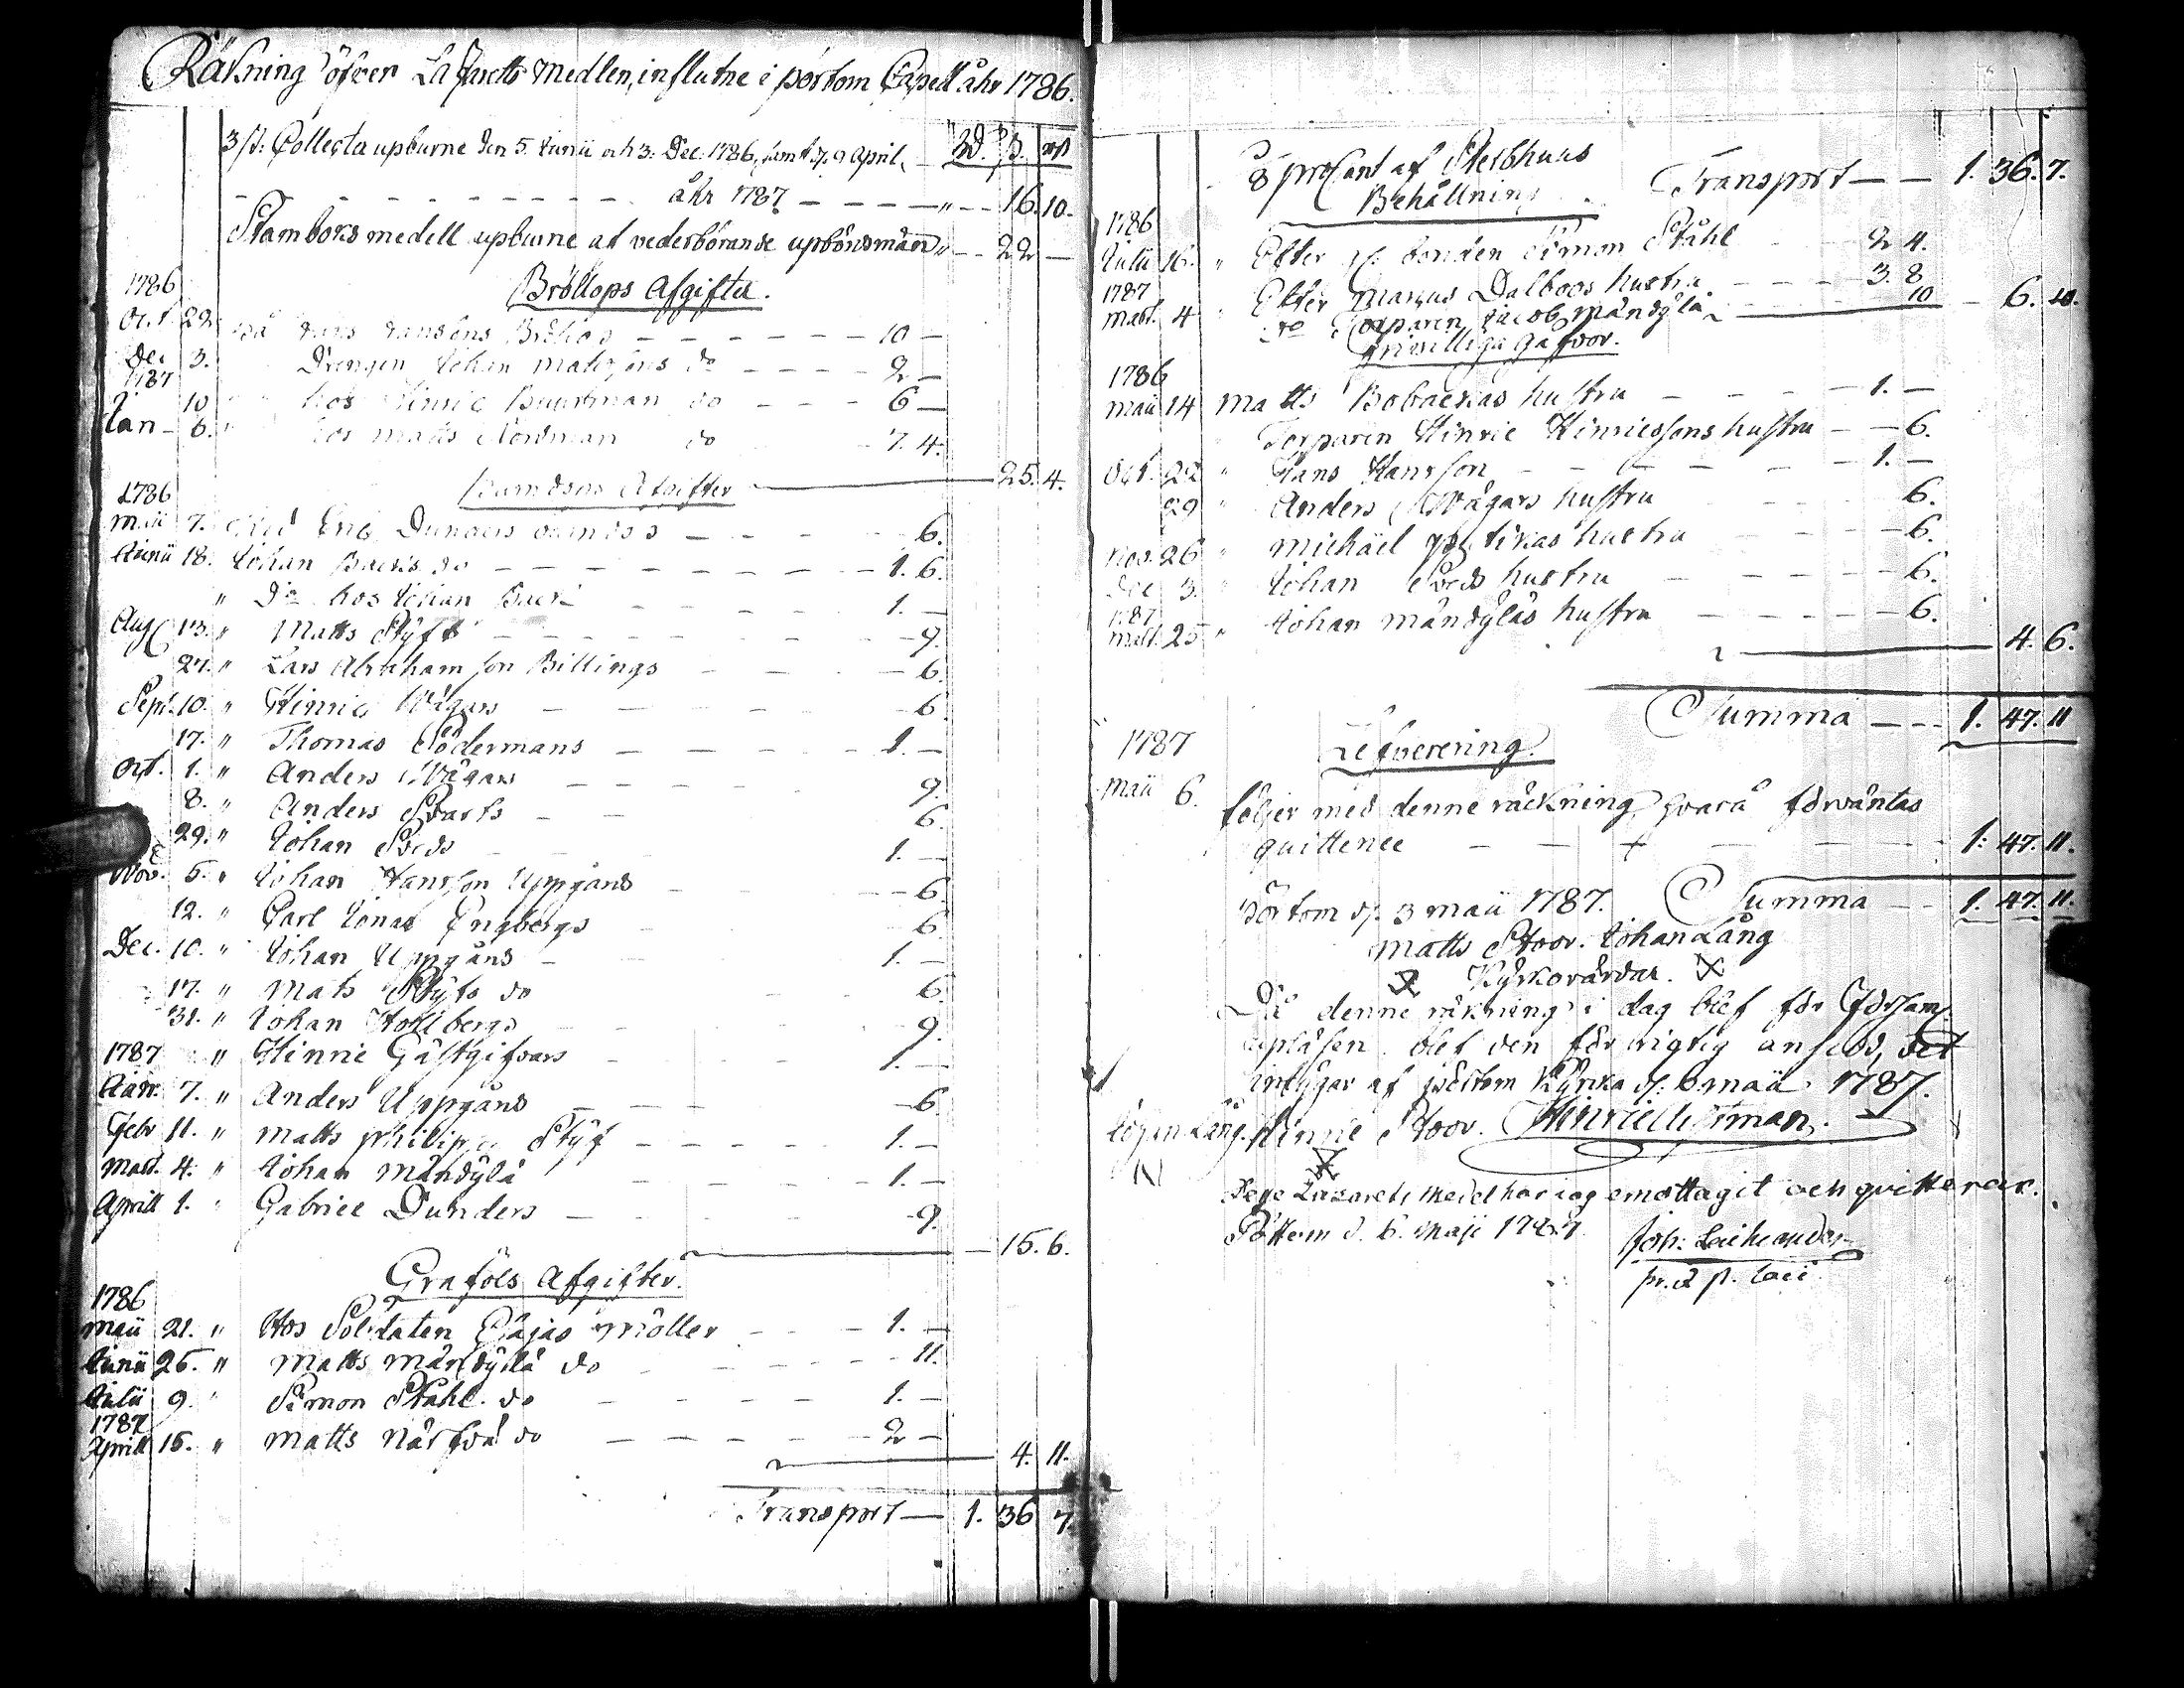 Räkning öfver Lazaretts Medlen, influtne i pörtom Capell åhr 1786.
3 st: Collecter upburne den 5. Junii och 3. Dec: 1786, samt d. 9 April. Rd. ß. rst
åhr 1787 — — — — " — 16. 10.
Stamboks medell upburne af vederbörande upbördsmän " — 22 —
1786 Bröllops Afgifter.
Oct. 22 på Hans Hansons Bröllop — — — 10 —
Dec 3. Drengen Johan Matszons do — — — 2 —
1787
10 " hos Hinric Buurtman do — — — 6 —
Jan — 6. " hos Matts Nordman do — 7. 4.
25. 4.
1786 Barndops Afgifter
Maii 7. Vid Eric Dunders barndop — — — 6.
Junii 18. Johan Backs do — — — 1. 6.
" Do hos Johan Back — — — 1. —
Aug 13. " Matts Styfs — — — 9.
27. " Lars Abrahamson Billings — — — 6.
Sept. 10. " Hinric Wägars — — — 6.
17. " Thomas Södermans — — — 1. —
Oct. 1. " Anders Wägars — — — 9.
8. " Anders Svarts — — 6.
29. " Johan Sveds — — 1. —
Nov. 5. " Johan Hansson Uppgårds — — — 6.
12. " Carl Jonas Engbergs — 6
Dec. 10. " Johan Uppgårds — 1. —
17. " Mats Styfs do — 6.
31. " Johan Kohlbergs — 9.
1787 " Hinric Gästgifvars — 1. —
Jan. 7. " Anders Uppgårds — — — 6
Febr 11. " Matts Philip Styf — — — 1. —
Mart. 4. " Johan Mändylä — — — 1. —
Aprill 1. " Gabriel Dunders — — — 9.
15. 6.
Graföls Afgifter.
1786
Maii 21. " Hos Soldaten Elajas Möller — — — 1. —
Junii 25. " Matts Mändylä do — — — 11.
Julii 9. " Simon Ståhl do — — — 1. —
1787
Aprill 15. " Matts Närfvä do — — — 2 —
4. 11.
Transport — 1. 36 7.
8 proCent af Sterbhuus
Behållning Transport — — 1. 36. 7.
1786
Julii 16. " Efter bonden Simon Ståhl 2 4.
1787
Mart. 4 " Efter Marcus Dalboos hustru — — — 3. 8
do Torparen Jacob Mändylä — 10 — 6. 10.
Friwilliga Gåfvor.
1786
Maii 14 Matts Bobackas hustru — — — 1. —
Torparen Hinric Hinricssons hustru — — 6.
Oct. 22 " Hans Hansson — — — 1. —
29 " Anders Wägars hustru 6.
Nov. 26 " Michäel hustru — — — 6.
Dec 3. " Johan Sveds hustru — — — 6.
1787
Mart. 25 " Johan Mändyläs hustru — — — 6.
4. 6.
Summa — — 1. 47. 11
1787 Lefverering.
Maii 6. följer med denne räckning, hvarå förväntas
quittence — — + — — — 1: 47. 11.
Pörtom d. 3 Maii 1787. Summa — — 1. 47. 11.
Matts Stoor. Johan Lång
Kyrkovärdar.
Då denne räkning i dag blef för Församl:
upläsen, blef den för rigtig ansedd, det
intygar af pörtom Kyrka d: 6 Maii 1787.
Johan Lång. Hinric Stoor. Hinric Uttman.
Desse Lazaretts Medel har jag emottagit och quitterar.
Pörtom d. 6. Maji 1787. Joh: Laihiander
pr. & p. Laii